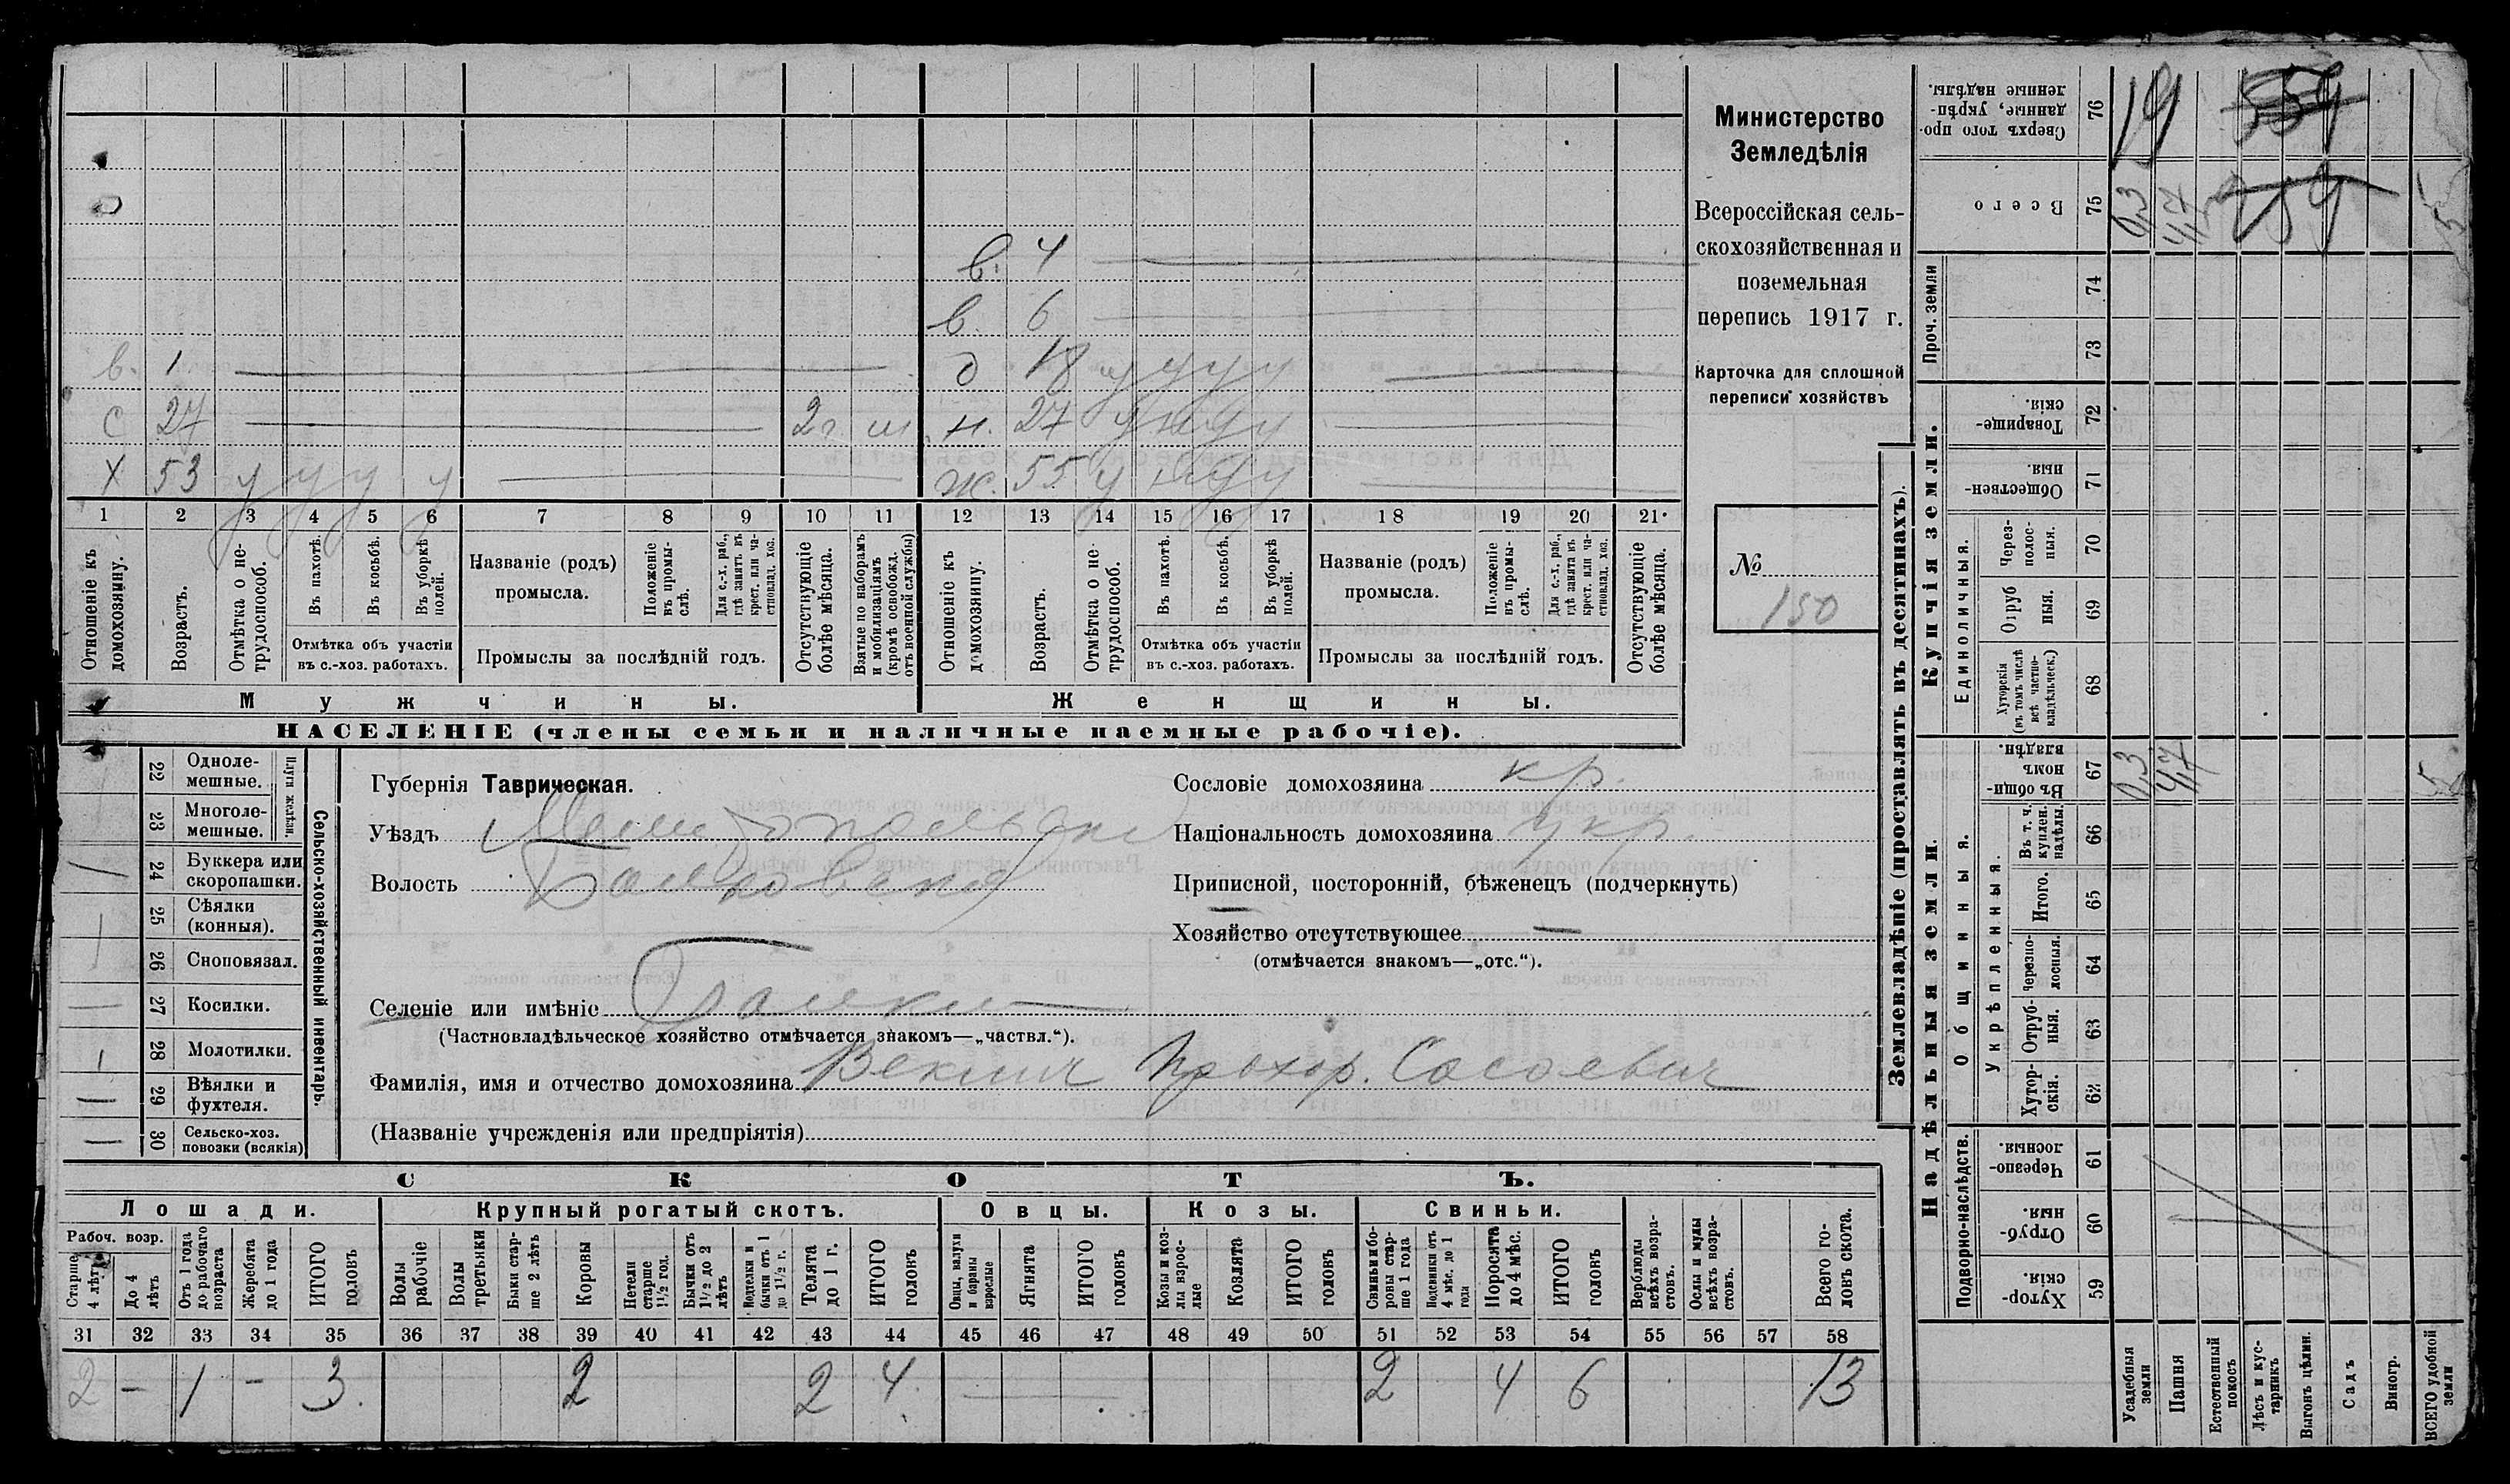 Министерство
Земледѣлія
Всероссійская сель-
скохозяйственная и
поземельная
перепись 1917 г.
Карточка для сплошной
переписи хозяйствъ
№
150
в. 4
в. 6
в. 1 д 18 у у у у
с 27 2 г. н. 27 у у у
х 53 у у у у ж. 55 у у у
1 2 3 4 5 6 7 8 9 10 11 12 13 14 15 16 17 18 19 20 21
Отношеніе къ домохозяину.
Возрастъ.
Отмѣтка о нетрудоспособ.
Въ пахотѣ.
Въ косьбѣ.
Въ уборкѣ полей.
Отмѣтка объ участіи
въ с.-хоз. работахъ.
Названіе (родъ)
промысла.
Положеніе въ промыслѣ.
Для с.-х. раб., гдѣ занятъ въ крест. или частновлад. хоз.
Промыслы за послѣдній годъ.
Отсутствующіе болѣе мѣсяца.
Взятые по наборамъ и мобилизаціямъ (кромѣ освобожд. отъ военной службы)
Отношеніе къ домохозяину.
Возрастъ.
Отмѣтка о нетрудоспособ.
Въ пахотѣ.
Въ косьбѣ.
Въ уборкѣ полей.
Отмѣтка объ участіи
въ с.-хоз. работахъ.
Названіе (родъ)
промысла.
Положеніе въ промыслѣ.
Для с.-х. раб., гдѣ занята въ крест. или частновлад. хоз.
Промыслы за послѣдній годъ.
Отсутствующіе болѣе мѣсяца.
Мужчины.
Женщины.
НАСЕЛЕНІЕ (члены семьи и наличные наемные рабочіе).
22 Одноле-
мешные.
23 Многоле-
мешные.
Плуги желѣзн.
24 Буккера или
скоропашки.
25 Сѣялки
(конныя).
26 Сноповязал.
27 Косилки.
28 Молотилки.
29 Вѣялки и
фухтеля.
30 Сельско-хоз.
повозки (всякія)
Сельско-хозяйственный инвентарь.
Губернія Таврическая.
Уѣздъ Мелитопольскій
Волость
Селеніе или имѣніе
(Частновладѣльческое хозяйство отмѣчается знакомъ—„частвл.“).
Фамилія, имя и отчество домохозяина Веклич Прохор.
(Названіе учрежденія или предпріятія)
Сословіе домохозяина кр.
Національность домохозяина укр.
Приписной, посторонній, бѣженецъ (подчеркнуть)
Хозяйство отсутствующее —
(отмѣчается знакомъ—„отс.“).
СКОТЪ.
Лошади. Крупный рогатый скотъ. Овцы. Козы. Свиньи.
Рабоч. возр.
Старше 4 лѣтъ
До 4 лѣтъ
Отъ 1 года до рабочаго возраста
Жеребята до 1 года
ИТОГО головъ
Волы рабочіе
Волы третьяки
Быки старше 2 лѣтъ
Коровы
Нетели старше 1½ год.
Бычки отъ 1½ до 2 лѣтъ
бычки отъ 1 до 1½ г.
Телята до 1 г.
ИТОГО головъ
Овцы, валухи и бараны взрослые
Ягнята
ИТОГО головъ
Козы и козлы взрослые
Козлята
ИТОГО головъ
Свиньи и боровы старше 1 года
Подсвинки отъ 4 мѣс. до 1 года
Поросята до 4 мѣс.
ИТОГО головъ
Верблюды всѣхъ возрастовъ.
Ослы и мулы всѣхъ возрастовъ.
Всего головъ скота.
31 32 33 34 35 36 37 38 39 40 41 42 43 44 45 46 47 48 49 50 51 52 53 54 55 56 57 58
2 — 1 — 3 2 2 4 2 4 6 13
Землевладѣніе (проставлять въ десятинахъ).
Надѣльныя земли.
Купчія земли.
Проч. земли
Подворно-наслѣдств.
Общинныя.
Укрѣпленныя.
Единоличныя.
Сверхъ того проданные, укрѣпленные надѣлы. 76 19
Всего 75 0,3 4,7
74
73
Товарищескія. 72
Общественныя. 71
Черезполосныя. 70
Отрубныя. 69
Хуторскія (въ томъ числѣ всѣ частновладѣльческ.) 68
Въ общинномъ владѣн. 67 0,3 4,7
Въ т. ч. куплен. надѣлы. 66
Итого. 65
Черезполосныя. 64
Отрубныя. 63
Хуторскія. 62
Черезполосныя 61
Отрубныя. 60
Хуторскія. 59
Усадебныя земли
Пашня
Естественный покосъ
Лѣсъ и кустарникъ
Выгонъ цѣлин.
Садъ
Виногр.
ВСЕГО удобной земли